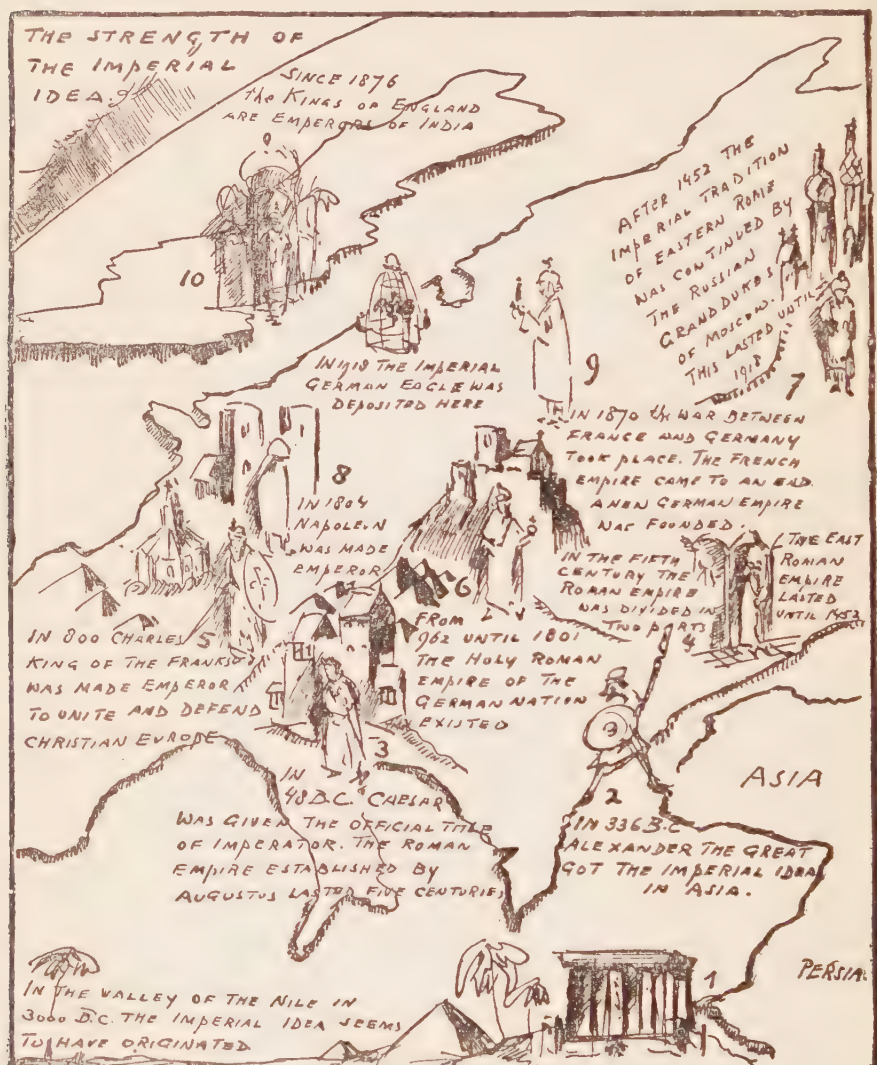 THE STRENGTH OF
THE IMPERIAL
IDEA.
SINCE 1876
the KINGS OF ENGLAND
ARE EMPERORS OF INDIA
10
AFTER 1453 THE
IMPERIAL TRADITION
OF EASTERN ROME
WAS CONTINUED BY
THE RUSSIAN
GRANDDUKES
OF MOSCOW.
THIS LASTED UNTIL
1918
7
IN 1918 THE IMPERIAL
GERMAN EAGLE WAS
DEPOSITED HERE
9
IN 1870 the WAR BETWEEN
FRANCE AND GERMANY
TOOK PLACE. THE FRENCH
EMPIRE CAME TO AN END.
A NEW GERMAN EMPIRE
WAS FOUNDED.
8
IN 1804
NAPOLEON
WAS MADE
EMPEROR
IN THE FIFTH
CENTURY THE
ROMAN EMPIRE
WAS DIVIDED IN
TWO PARTS
4
THE EAST
ROMAN
EMPIRE
LASTED
UNTIL 1453
6
FROM
962 UNTIL 1801
THE HOLY ROMAN
EMPIRE OF THE
GERMAN NATION
EXISTED
IN 800 CHARLES 5
KING OF THE FRANKS
WAS MADE EMPEROR
TO UNITE AND DEFEND
CHRISTIAN EUROPE
3
IN
48 B.C. CAESAR
WAS GIVEN THE OFFICIAL TITLE
OF IMPERATOR. THE ROMAN
EMPIRE ESTABLISHED BY
AUGUSTUS LASTED FIVE CENTURIES
ASIA
2
IN 336 B.C
ALEXANDER THE GREAT
GOT THE IMPERIAL IDEA
IN ASIA.
PERSIA
1
IN THE VALLEY OF THE NILE IN
3000 B.C. THE IMPERIAL IDEA SEEMS
TO HAVE ORIGINATED